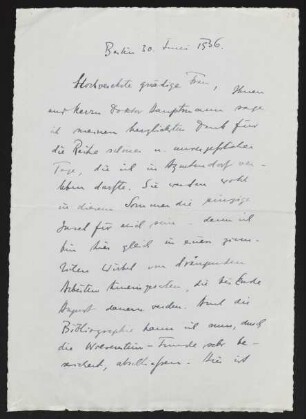 Berlin 30. Juni 1936.
Hochverehrte gnädige Frau, Ihnen
und Herrn Doktor Hauptmann sage
ich meinen herzlichsten Dank für
die Reihe schöner u. unvergeßlicher
Tage, die ich in Agnetendorf ver-
leben durfte. Sie werden wohl
in diesem Sommer die einzige
für mich sein – denn ich
bin hier gleich in einen
Wirbel von drängenden
Arbeiten hineingeraten, die bis Ende
August dauern werden. Auch die
Bibliographie kann ich nun, durch
die Funde sehr be-
reichert, abschließen. Sie ist